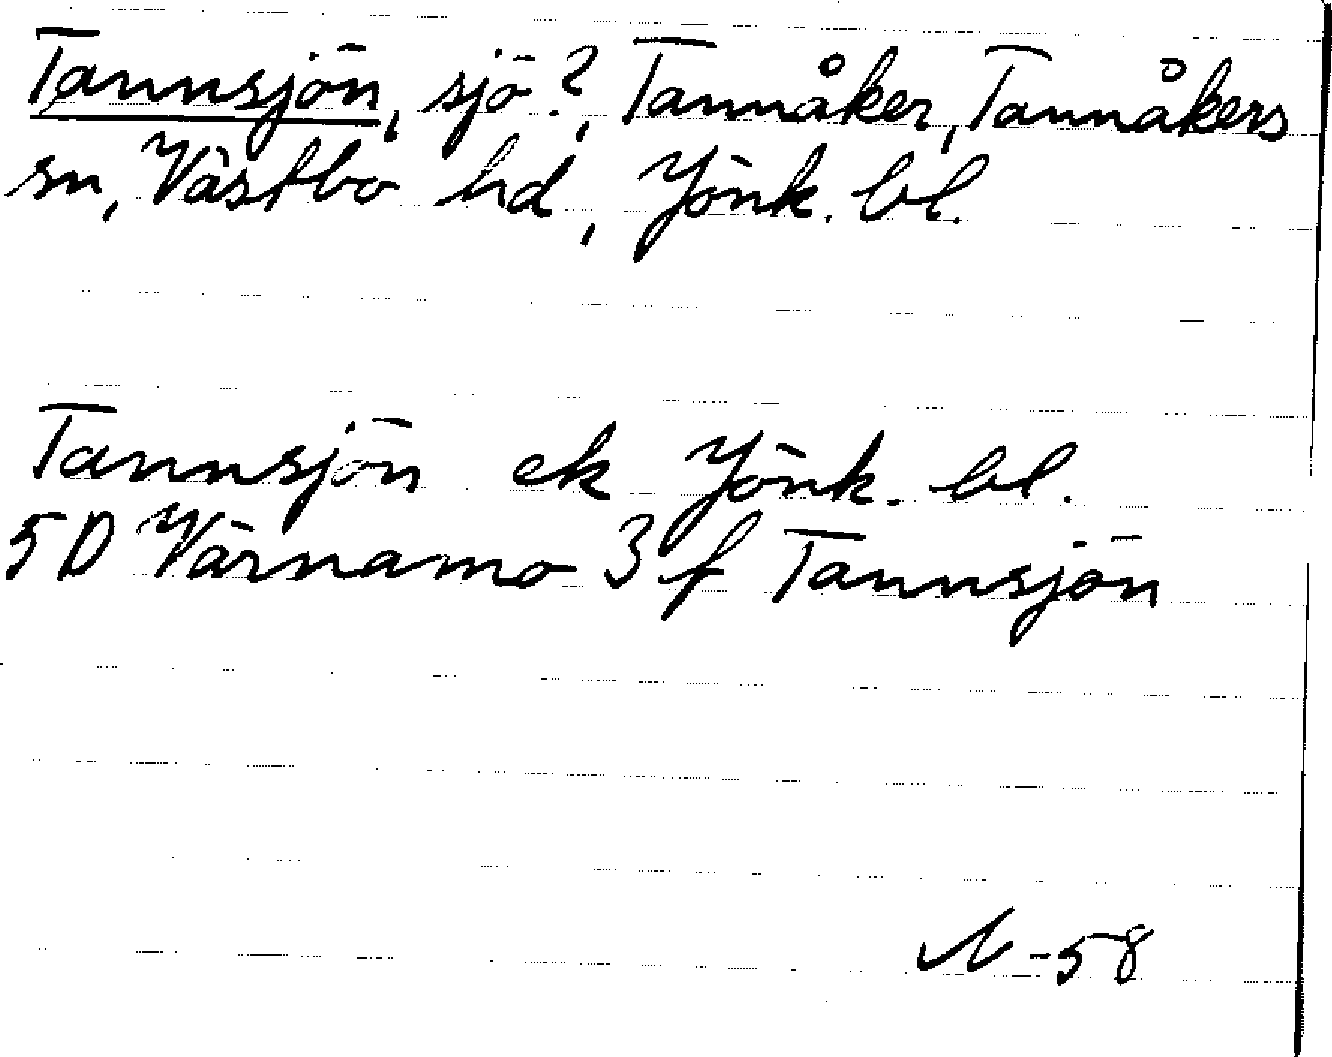 Tannsjön, sjö?, Tannåker, Tannåkers
sn, Västbo hd, Jönk. bl.
Tannsjön ek Jönk. bl.
5D Värnamo 3 f Tannsjön
N-58